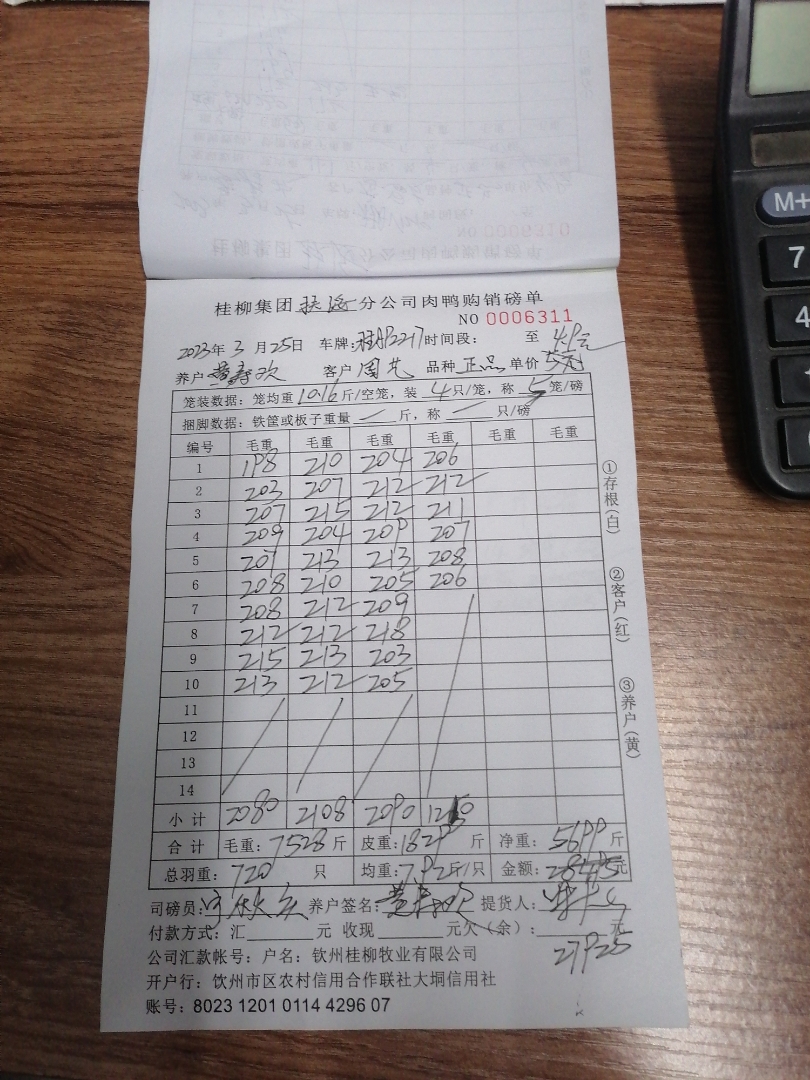 桂柳集团 扶绥 分公司肉鸭购销磅单
NO 0006311
2023年 3 月 25日 车牌: 时间段: 至 4.9元
养户 客户 周 品种 正品 单价 5元
笼装数据: 笼均重 10.16 斤/空笼, 装 4 只/笼, 称 5 笼/磅
捆脚数据: 铁筐或板子重量 — 斤, 称 — 只/磅
编号 毛重 毛重 毛重 毛重 毛重 毛重
1 198 210 204 206
2 203 207 212 212
3 207 215 212 211
4 209 204 209 207
5 207 213 213 208
6 208 210 205 206
7 208 212 209
8 212 212 218
9 215 213 203
10 213 212 205
11
12
13
14
小计 2080 2108 2090 1250
合计 毛重: 7528 斤 皮重: 1829 斤 净重: 5699 斤
总羽重: 720 只 均重: 7.92 斤/只 金额: 28495 元
司磅员: 养户签名: 提货人:
付款方式: 汇 元 收现 元欠(余): 元
27925
公司汇款帐号: 户名: 钦州桂柳牧业有限公司
开户行: 钦州市区农村信用合作联社大垌信用社
账号: 8023 1201 0114 4296 07
①存根(白)
②客户(红)
③养户(黄)
M+
7
4